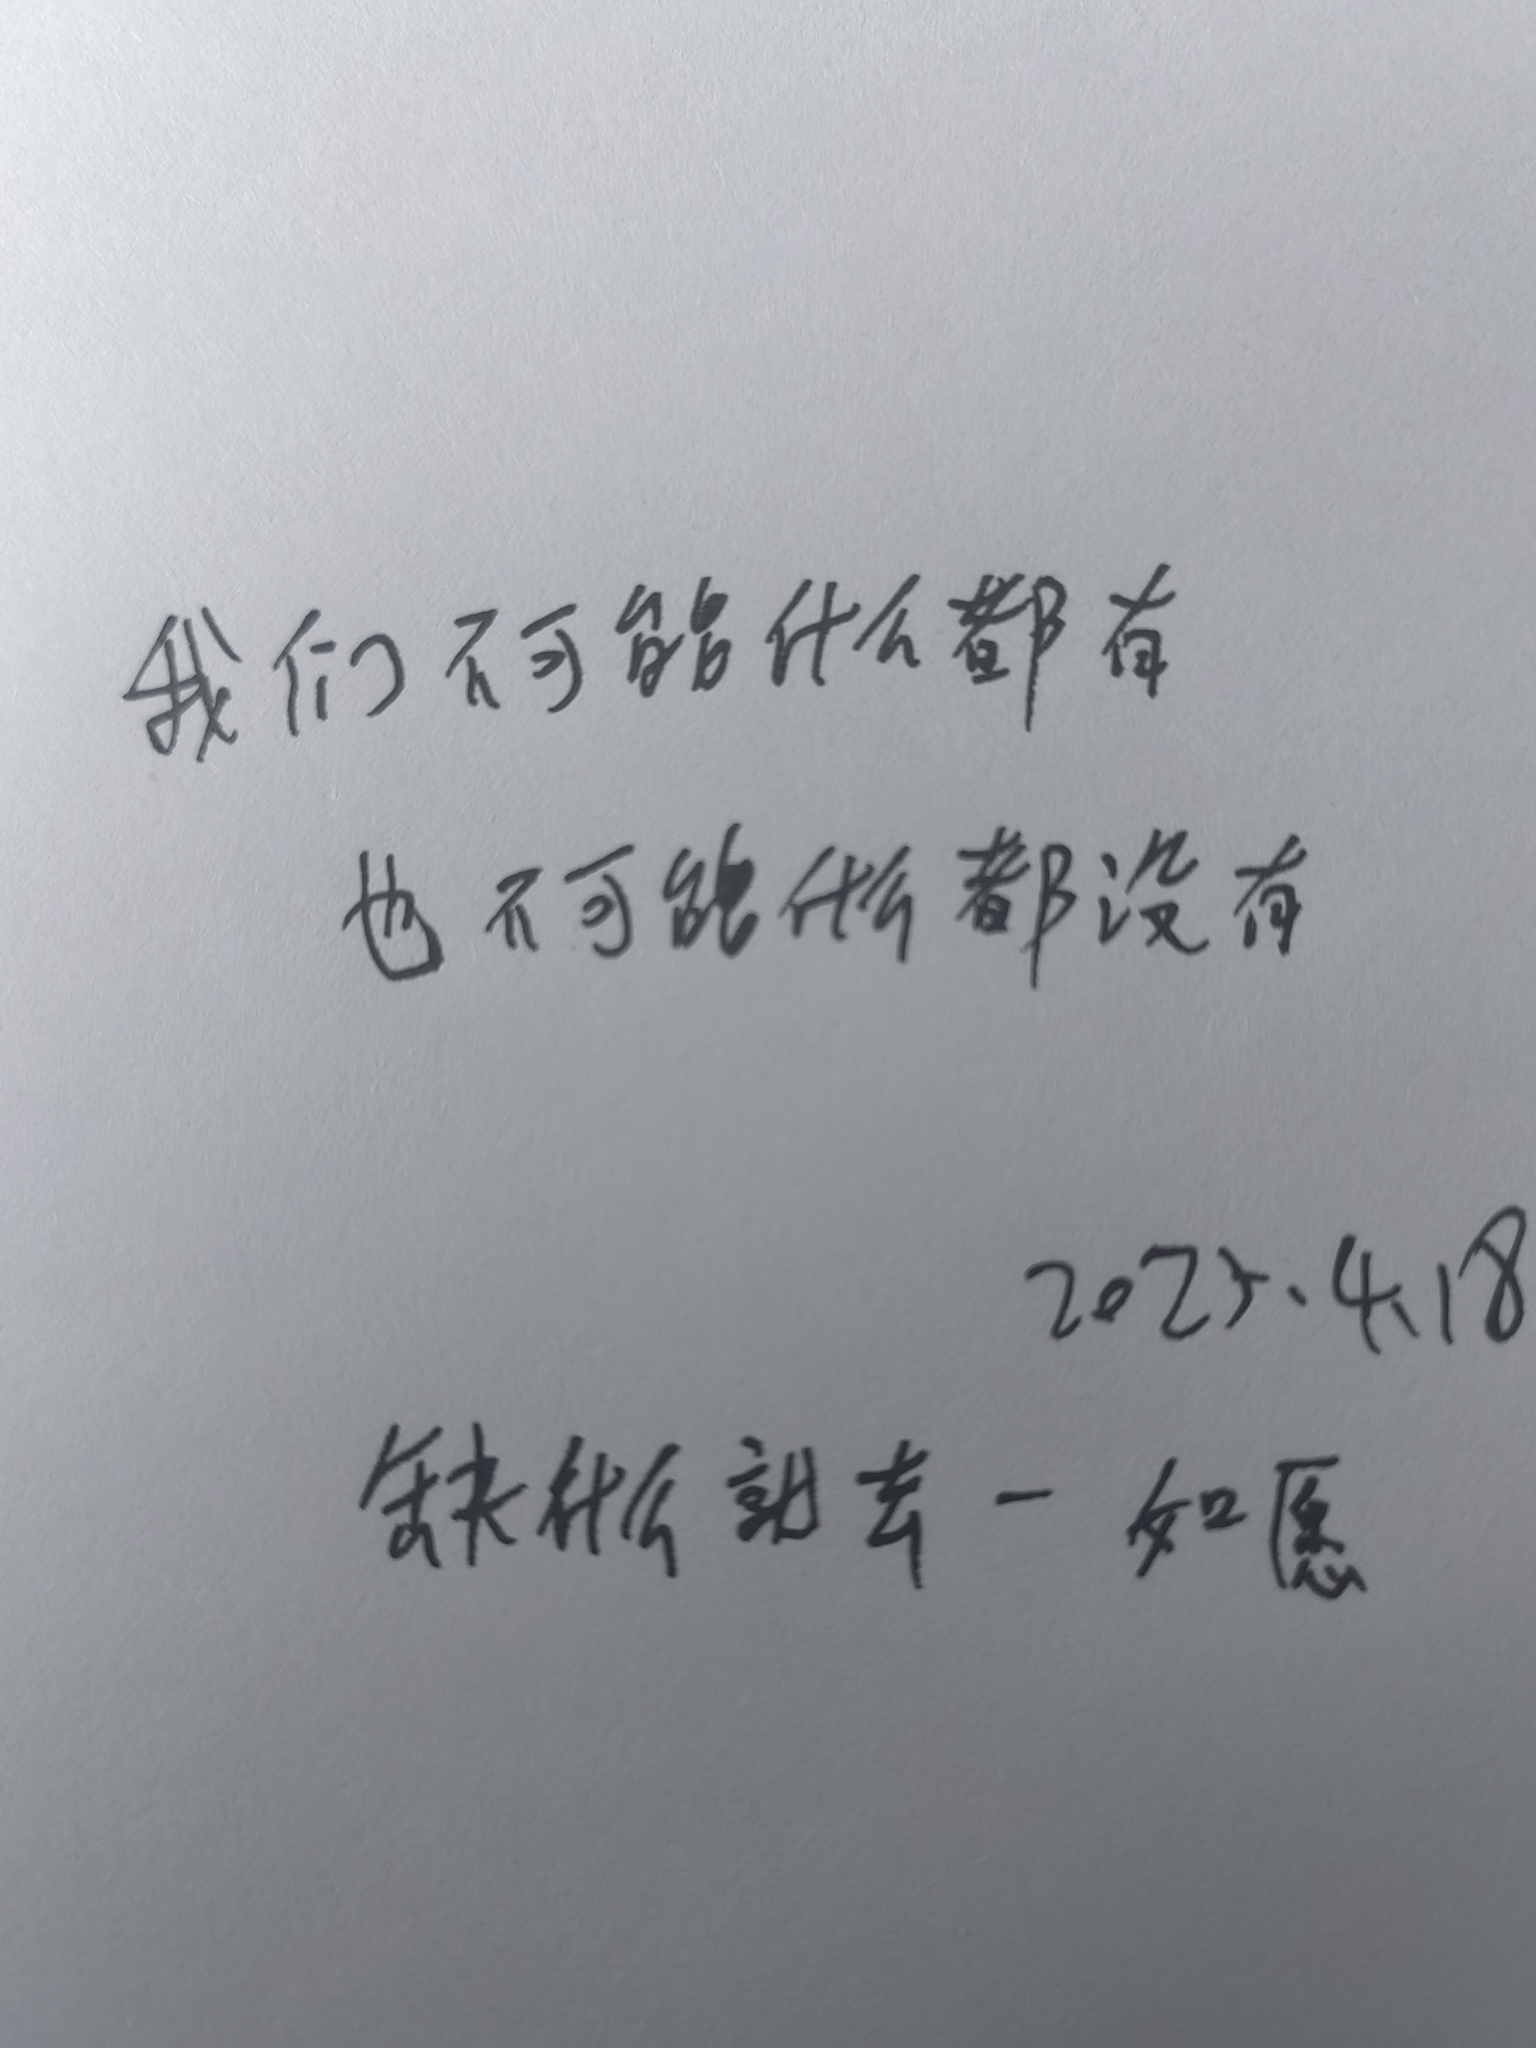 我们不可能什么都有
也不可能什么都没有
2025.4.18
缺什么就去一如愿